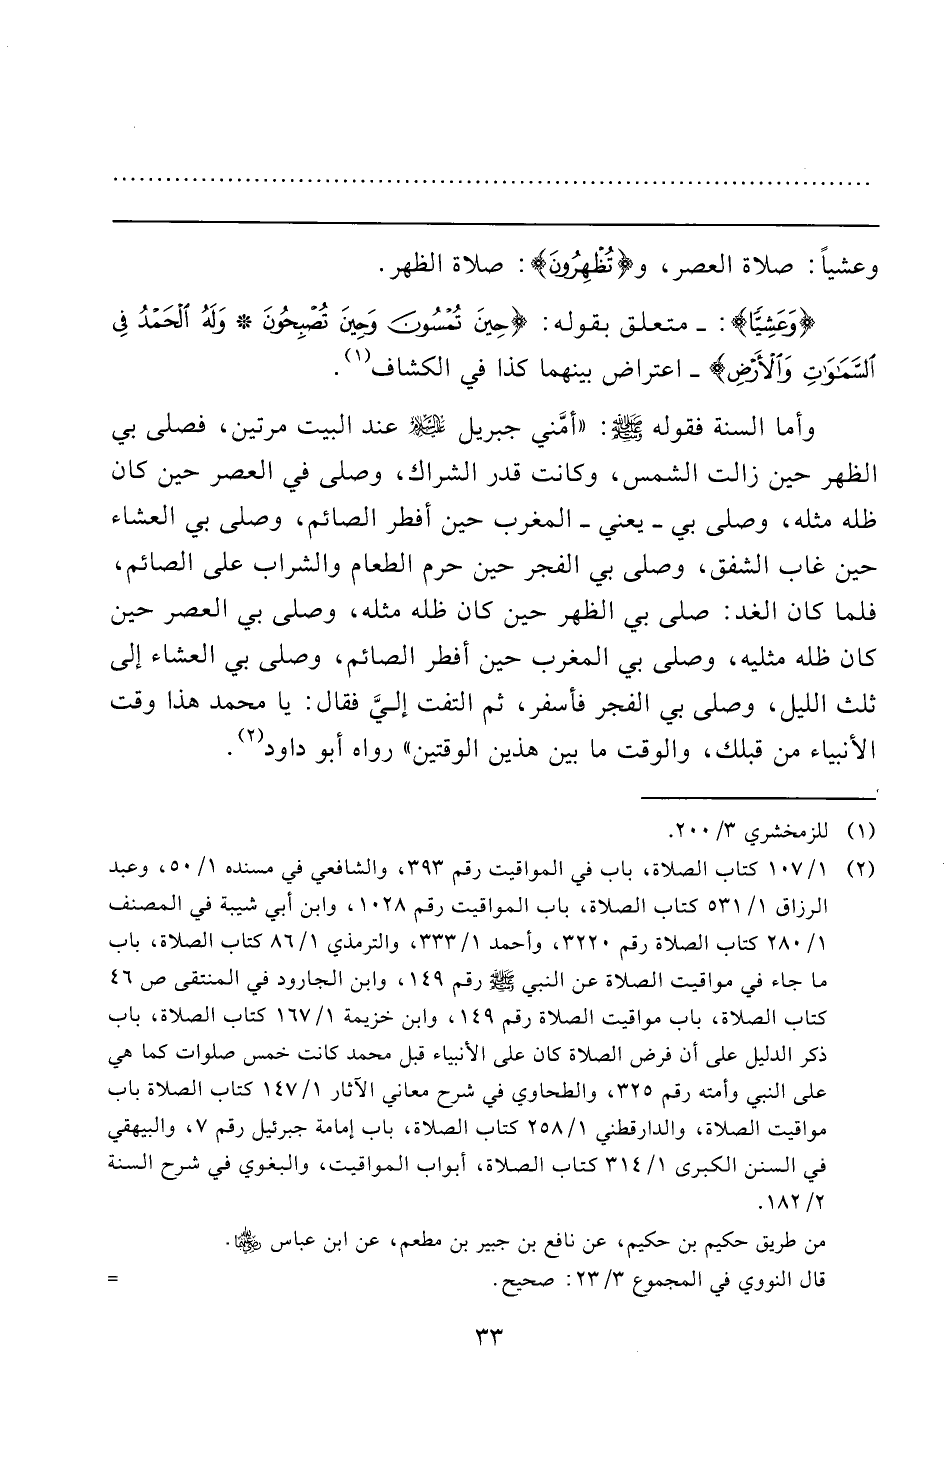 وعشياً: صلاة العصر، و﴿تُظْهِرُونَ﴾: صلاة الظهر.
﴿وَعَشِيًّا﴾: ـ متعلق بقوله: ﴿حِينَ تُمْسُونَ وَحِينَ تُصْبِحُونَ * وَلَهُ الْحَمْدُ فِي
السَّمَٰوَٰتِ وَالْأَرْضِ﴾ ـ اعتراض بينهما كذا في الكشاف(١).
وأما السنة فقوله ﷺ: «أمَّني جبريل عليه السلام عند البيت مرتين، فصلى بي
الظهر حين زالت الشمس، وكانت قدر الشراك، وصلى في العصر حين كان
ظله مثله، وصلى بي ـ يعني ـ المغرب حين أفطر الصائم، وصلى بي العشاء
حين غاب الشفق، وصلى بي الفجر حين حرم الطعام والشراب على الصائم،
فلما كان الغد: صلى بي الظهر حين كان ظله مثله، وصلى بي العصر حين
كان ظله مثليه، وصلى بي المغرب حين أفطر الصائم، وصلى بي العشاء إلى
ثلث الليل، وصلى بي الفجر فأسفر، ثم التفت إليَّ فقال: يا محمد هذا وقت
الأنبياء من قبلك، والوقت ما بين هذين الوقتين» رواه أبو داود(٢).
(١) للزمخشري ٣/ ٢٠٠.
(٢) ١/ ١٠٧ كتاب الصلاة، باب في المواقيت رقم ٣٩٣، والشافعي في مسنده ١/ ٥٠، وعبد
الرزاق ١/ ٥٣١ كتاب الصلاة، باب المواقيت رقم ١٠٢٨، وابن أبي شيبة في المصنف
١/ ٢٨٠ كتاب الصلاة رقم ٣٢٢٠، وأحمد ١/ ٣٣٣، والترمذي ١/ ٨٦ كتاب الصلاة، باب
ما جاء في مواقيت الصلاة عن النبي ﷺ رقم ١٤٩، وابن الجارود في المنتقى ص ٤٦
كتاب الصلاة، باب مواقيت الصلاة رقم ١٤٩، وابن خزيمة ١/ ١٦٧ كتاب الصلاة، باب
ذكر الدليل على أن فرض الصلاة كان على الأنبياء قبل محمد كانت خمس صلوات كما هي
على النبي وأمته رقم ٣٢٥، والطحاوي في شرح معاني الآثار ١/ ١٤٧ كتاب الصلاة باب
مواقيت الصلاة، والدارقطني ١/ ٢٥٨ كتاب الصلاة، باب إمامة جبرئيل رقم ٧، والبيهقي
في السنن الكبرى ١/ ٣١٤ كتاب الصلاة، أبواب المواقيت، والبغوي في شرح السنة
٢/ ١٨٢.
من طريق حكيم بن حكيم، عن نافع بن جبير بن مطعم، عن ابن عباس رضي الله عنهما.
قال النووي في المجموع ٣/ ٢٣: صحيح. =
٣٣